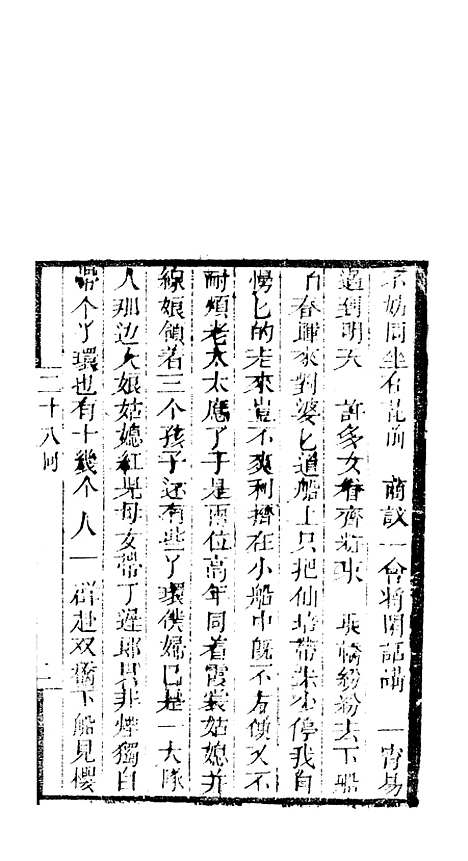 不妨同坐在花前　商談一會將閑話講　一宵易
過到明天　許多女眷齊新來　乘轎紛紛去下船
春暉來對婆匕道船上只把仙培帶來少停我自
慢匕的走來豈不爽利擠在小船中旣不方便又不
耐煩老太太應了于是兩位高年同着霞裳姑媳并
線娘領着三个孩子还有些丫環僕婦已是一大隊
人那边大娘姑媳紅児母女帶了遲郎君非煙獨自
帶个丫環也有十幾个人一群赴双橋下船見櫻
二十八囘
二